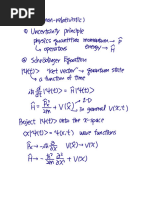 (non-relativistic)
① Uncertainty principle
physics quantities momentum → p̂
↳ operators energy → Ĥ
② Schrödinger Equation
|ψ(t)> "ket vector" → quantum state
a function of time
iħ d/dt |ψ(t)> = Ĥ |ψ(t)>
Ĥ = p̂²/2m + V(x̂)
in general V(x,t)
Project into the x-space
<x|ψ(t)> = ψ(x,t) wave functions
V(x̂) → V(x)
Ĥ → - ħ²/2m ∂²/∂x² + V(x)